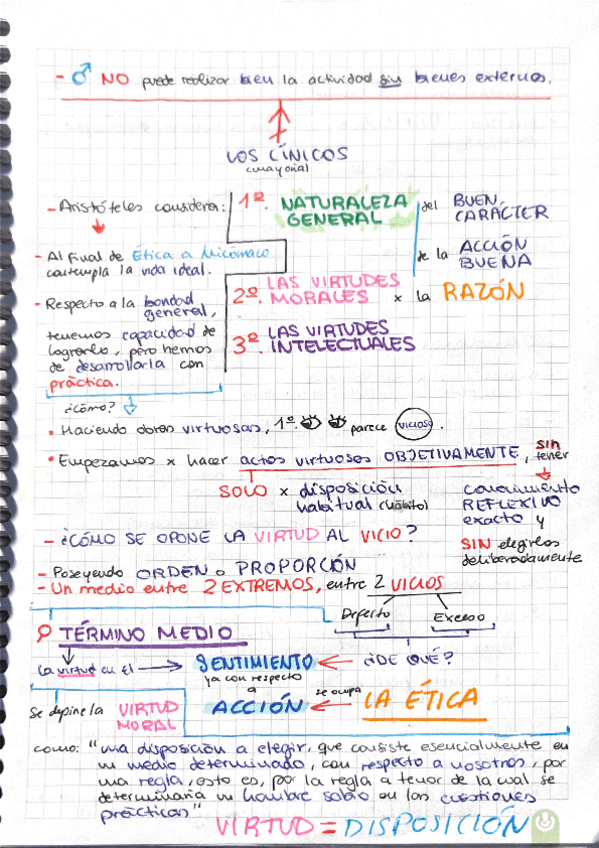 - ♂ NO puede realizar bien la actividad sin bienes externos.
LOS CÍNICOS
- Aristóteles considera:
1º. NATURALEZA GENERAL
del BUEN CARÁCTER
de la ACCIÓN BUENA
2º. LAS VIRTUDES MORALES x la RAZÓN
3º. LAS VIRTUDES INTELECTUALES
- Al final de Ética a Nicómaco
contempla la vida ideal.
- Respecto a la bondad
general,
tenemos capacidad de
lograrlo, pero hemos
de desarrollarla con
práctica.
¿cómo?
• Haciendo obras virtuosas, 1º. parece VICIOSO.
• Empezamos x hacer actos virtuosos OBJETIVAMENTE, sin tener
SOLO x disposición
habitual (hábito)
conocimiento
REFLEXIVO
exacto y
SIN elegirlos
deliberadamente
- ¿CÓMO SE OPONE LA VIRTUD AL VICIO?
- Poseyendo ORDEN o PROPORCIÓN
- Un medio entre 2 EXTREMOS, entre 2 VICIOS
Defecto Exceso
TÉRMINO MEDIO
La virtud es el → SENTIMIENTO ← ¿DE QUÉ?
ya con respecto
a
ACCIÓN ← se ocupa LA ÉTICA
Se define la VIRTUD
MORAL
como: "una disposición a elegir, que consiste esencialmente en
un medio determinado, con respecto a nosotros, por
una regla, esto es, por la regla a tenor de la cual se
determinaría un hombre sabio en las cuestiones
prácticas"
VIRTUD = DISPOSICIÓN